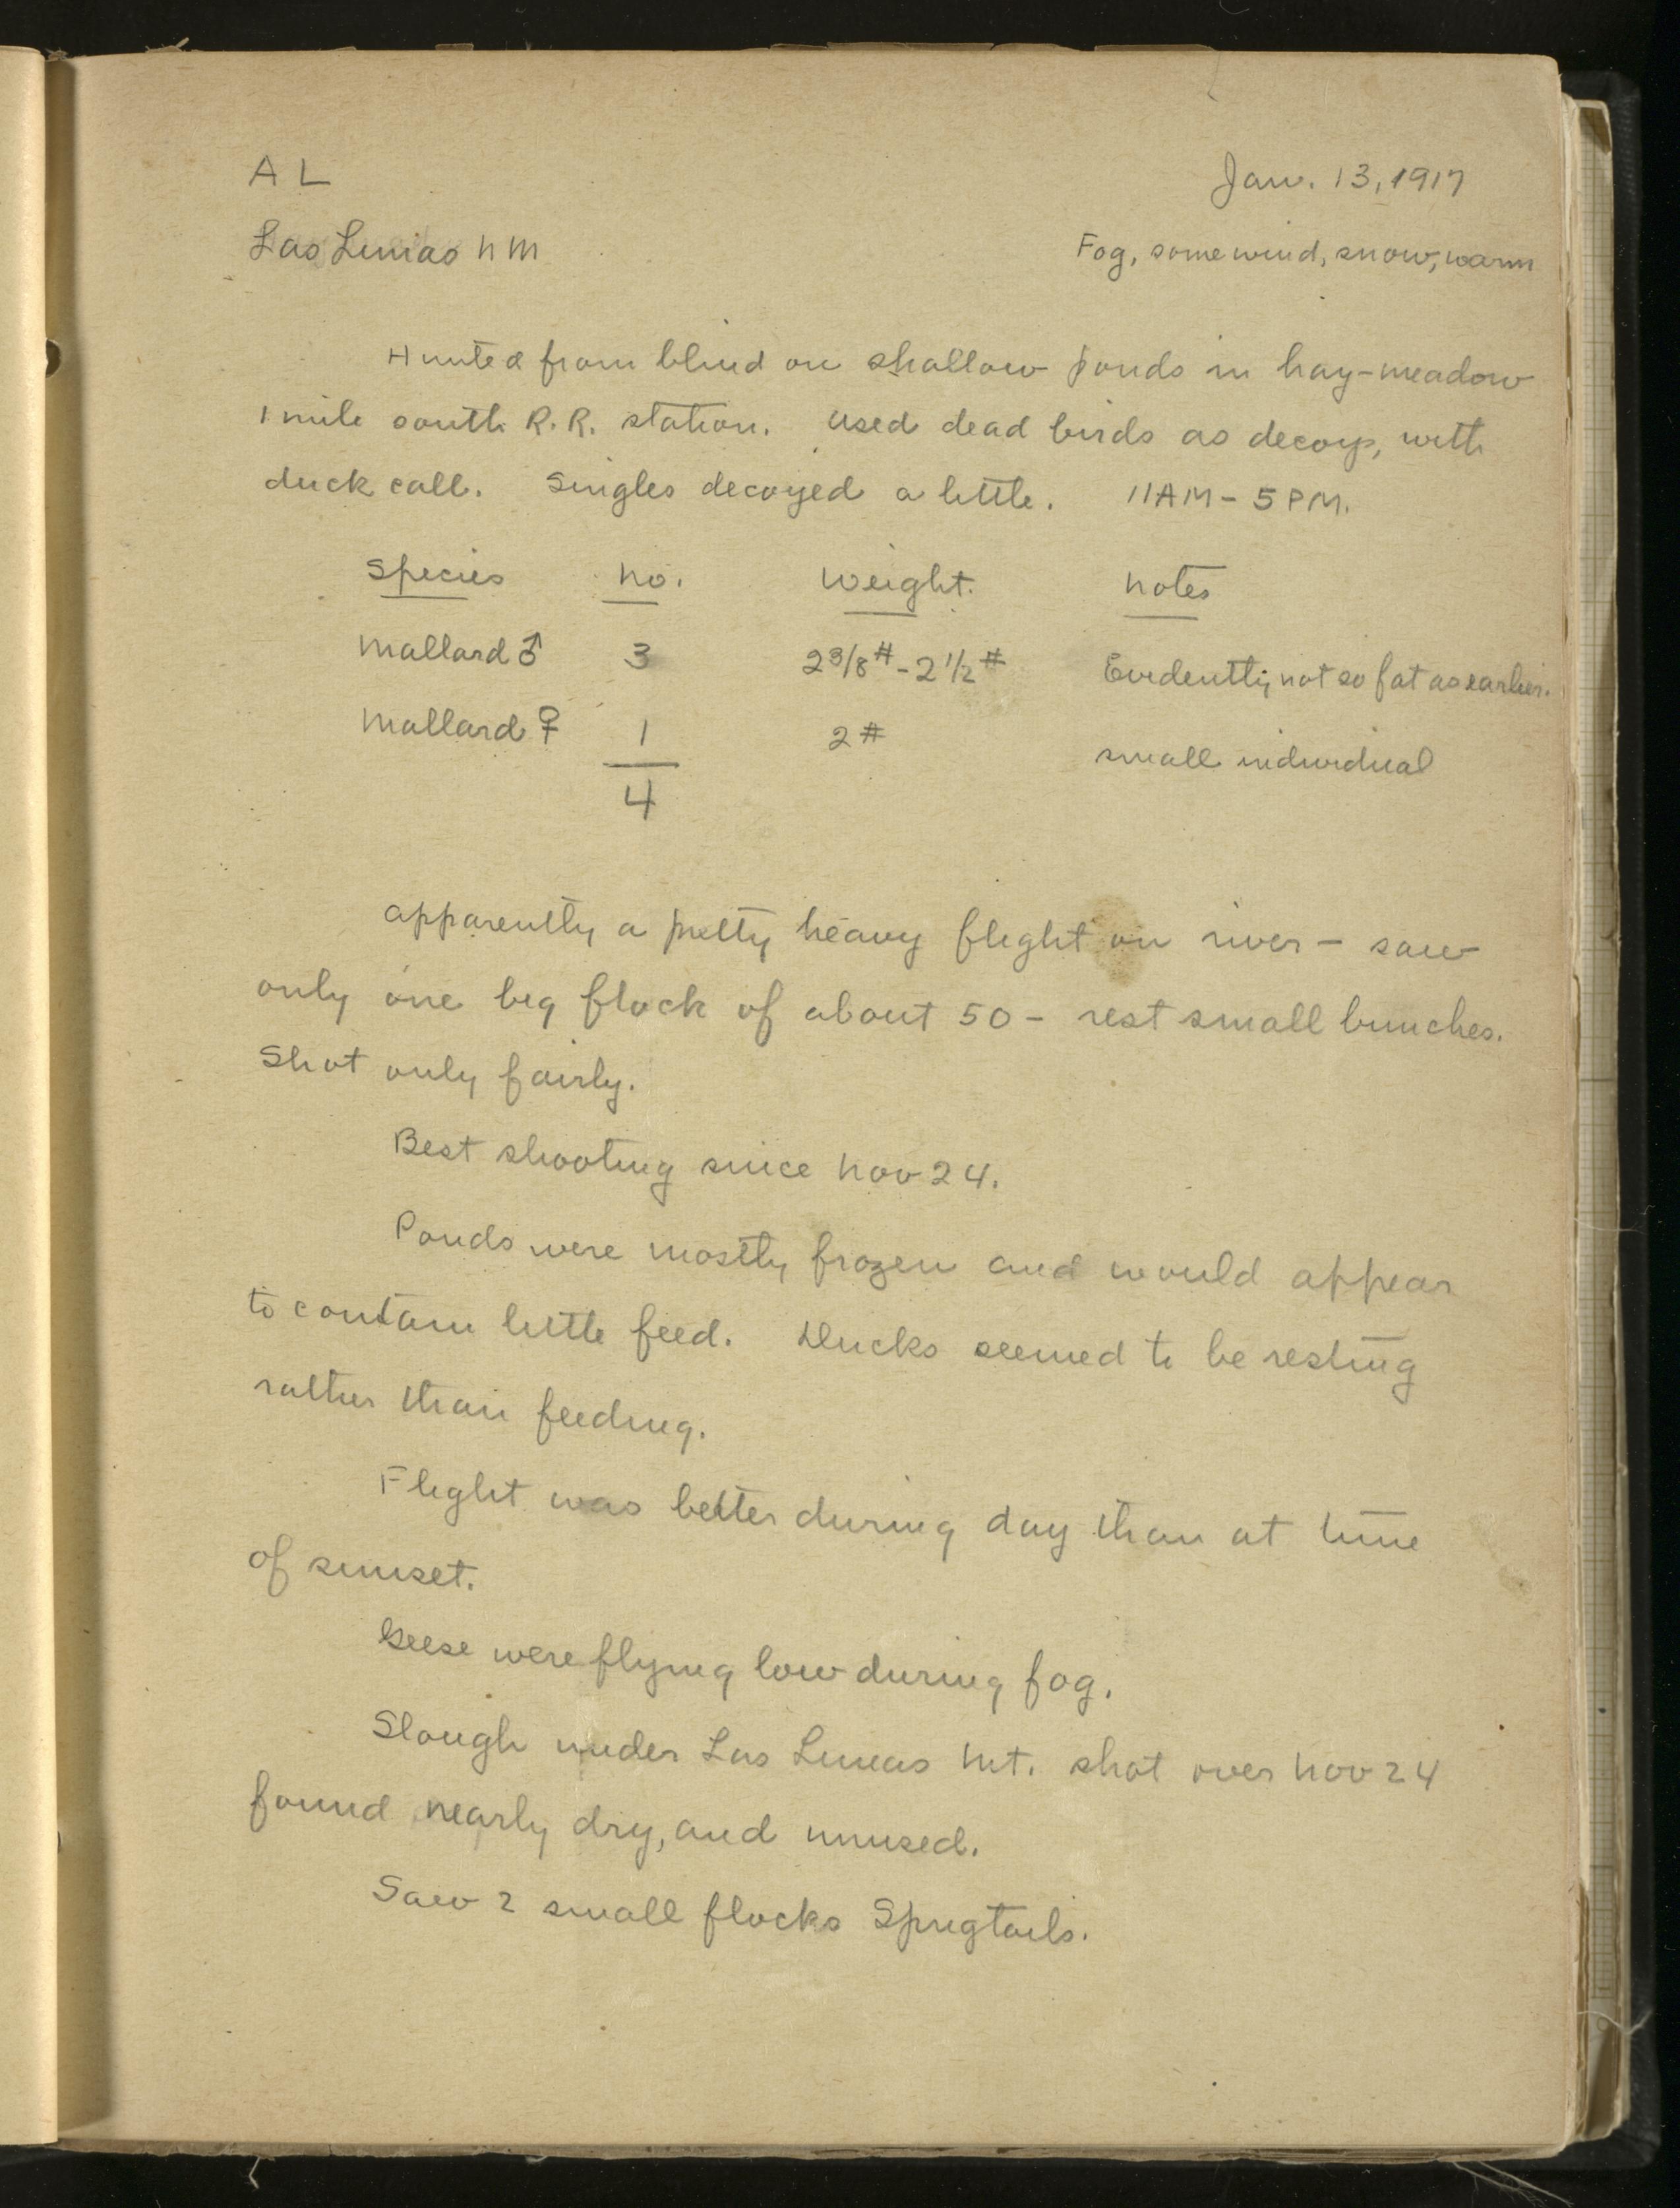 A L
Jan. 13, 1917
Las Lunias NM
Fog, some wind, snow, warm
Hunted from blind on shallow ponds in hay-meadow
1 mile south R.R. station. Used dead birds as decoys, with
duck call. Singles decoyed a little. 11AM - 5PM.
Species No. Weight. Notes
Mallard ♂ 3 2 3/8 # - 2 1/2 # Evidently not so fat as earlier.
Mallard ♀ 1 2 # small individual
4
Apparently a pretty heavy flight on river - saw
only one big flock of about 50 - rest small bunches.
Shot only fairly.
Best shooting since Nov 24.
Ponds were mostly frozen and would appear
to contain little feed. Ducks seemed to be resting
rather than feeding.
Flight was better during day than at time
of sunset.
Geese were flying low during fog.
Slough under Las Lunas Mt. shot over Nov 24
found nearly dry, and unused.
Saw 2 small flocks Sprigtails.